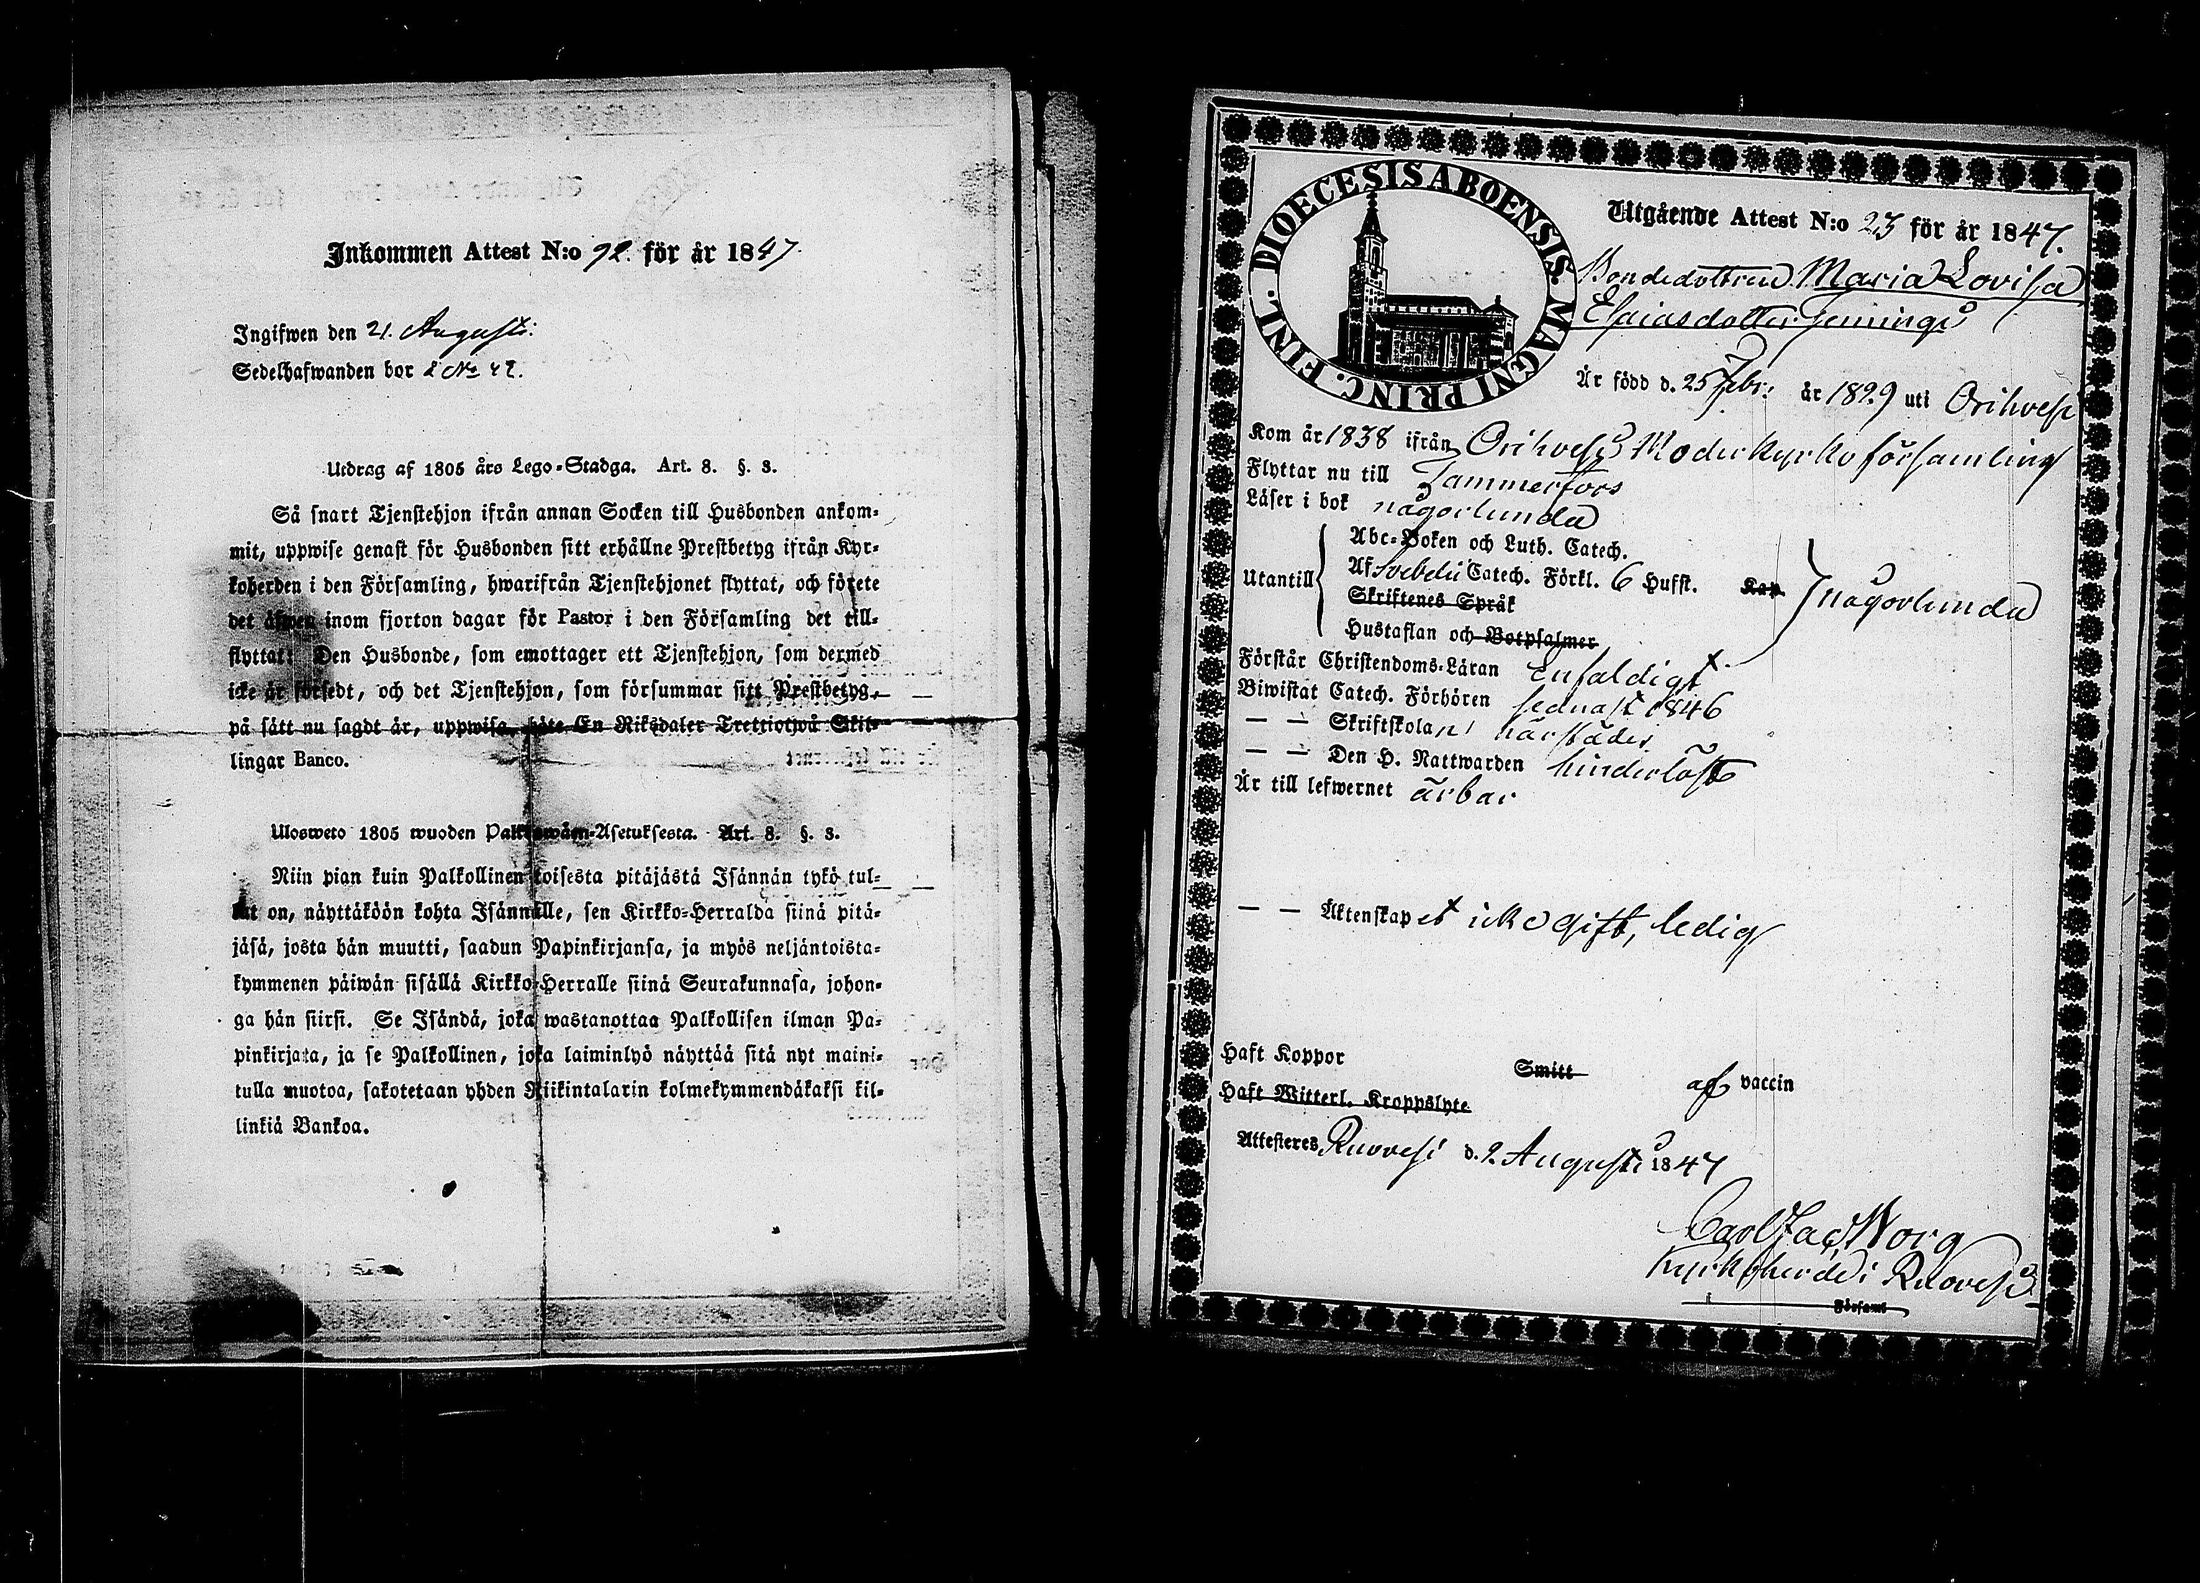 Inkommen Attest N:o 92. för år 1847.
Ingifwen den 21. Augusti:
Sedelhafwanden bor 2 No 42.
Utdrag af 1805 års Lego-Stadga. Art. 8. §. 3.
Så snart Tjenstehjon ifrån annan Socken till Husbonden ankom-
mit, uppwise genast för Husbonden sitt erhållne Prestbetyg ifrån Kyr-
koherden i den Församling, hwarifrån Tjenstehjonet flyttat, och förete
det äfwen inom fjorton dagar för Pastor i den Församling det till-
flyttat: Den Husbonde, som emottager ett Tjenstehjon, som dermed
icke är försedt, och det Tjenstehjon, som försummar sitt Prestbetyg,
på sätt nu sagdt är, uppwisa, böte En Riksdaler Trettiotwå Skil-
lingar Banco.
Ulosweto 1805 wuoden Palkowäen-Asetuksesta. Art. 8. §. 3.
Niin pian kuin Palkollinen toisesta pitäjästä Isännän tykö tul-
lut on, näyttäköön kohta Isännälle, sen Kirkko-Herralda siinä pitä-
jäsä, josta hän muutti, saadun Papinkirjansa, ja myös neljäntoista-
kymmenen päiwän sisällä Kirkko-Herralle siinä Seurakunnasa, johon-
ga hän siirsi. Se Isändä, joka wastanottaa Palkollisen ilman Pa-
pinkirjata, ja se Palkollinen, joka laiminlyö näyttää sitä nyt maini-
tulla muotoa, sakotetaan yhden Riikintalarin kolmekymmendäkaksi kil-
linkiä Bankoa.
DIOECESIS ABOENSIS. MAGNI PRINC. FINL.
Utgående Attest N:o 23 för år 1847.
Bondedottren Maria Lovisa
Esaiasdotter Jemings
Är född d. 25 Febr: år 1829 uti Orihvesi
Kom år 1838 ifrån Orihvesi Moderkyrkoförsamling
Flyttar nu till Tammerfors
Läser i bok någorlunda
Utantill
Abc-Boken och Luth. Catech.
Af Svebelii Catech. Förkl. 6 Hufst. Kap.
Skriftenes Språk
Hustaflan och Botpsalmer
någorlunda
Förstår Christendoms-Läran Enfaldigt.
Biwistat Catech. Förhören sednast 1846
— — Skriftskolan närstädes
— — Den H. Nattwarden hinderlöst
Är till lefwernet ärbar
— — Äktenskapet icke gift, ledig
Haft Koppor Smitt af vaccin
Haft Witterl. Kroppslyte
Attesteres Ruovesi d. 2 Augusti 1847
Carl Jac Worg
Kyrkoherde i Ruovesi
Församl